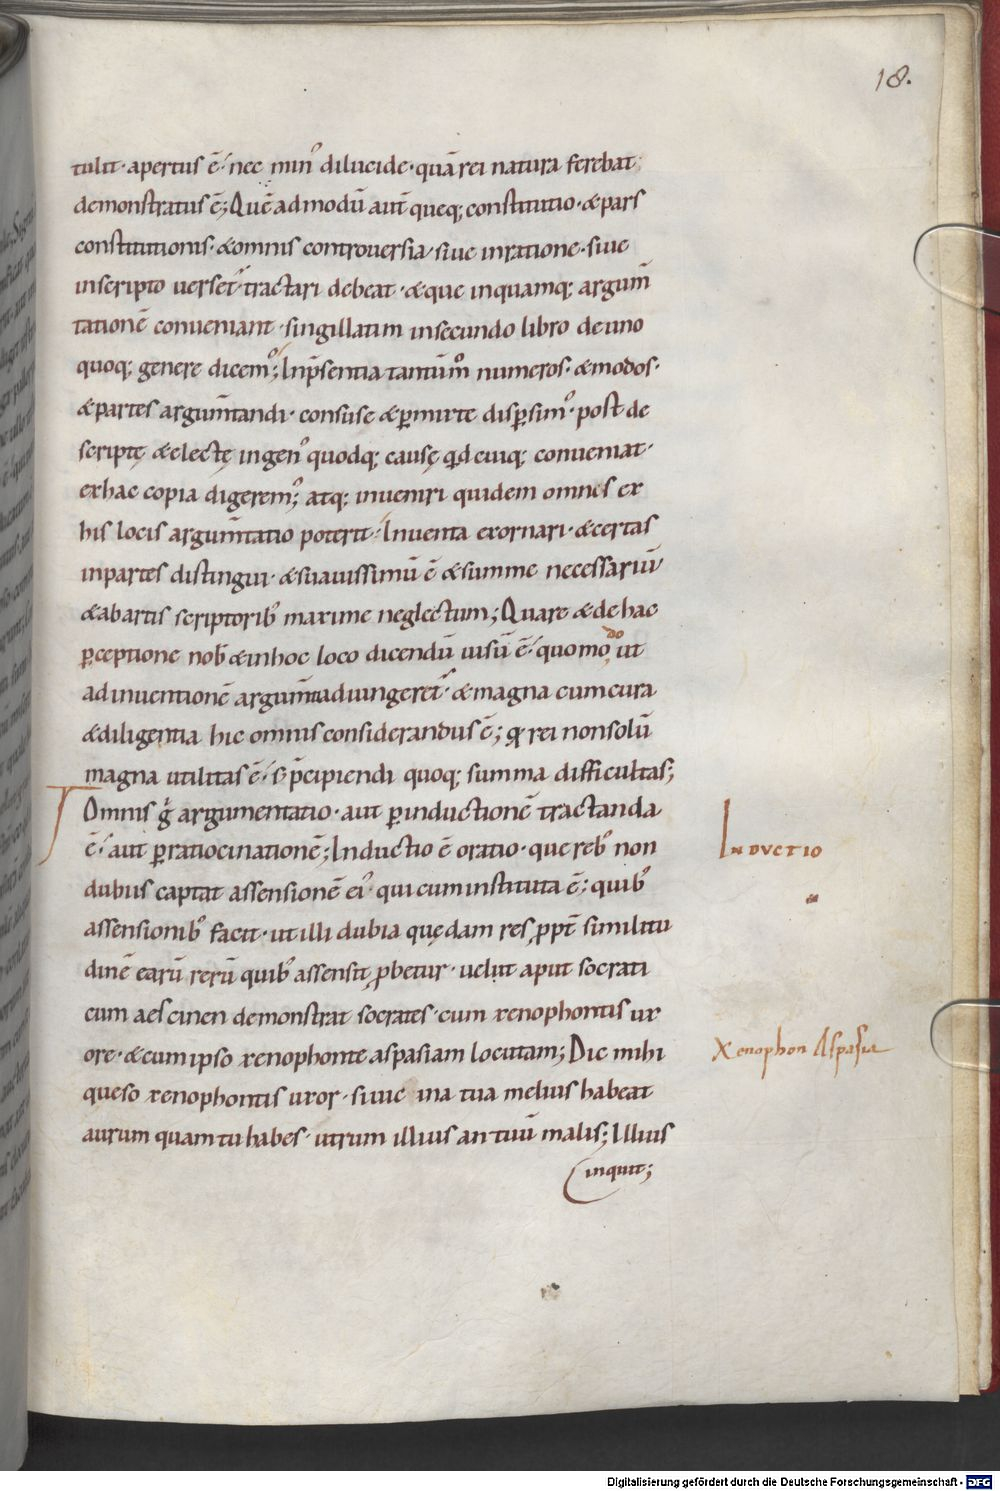 18.
tulit · apertus ē · nec min᾽ dilucide · quā rei natura ferebat
demonstratus ē; Quē ad modū aut̄ queq; constitutio · & pars
constitutionis · & omnis controversia · sive inratione · sive
inscripto verset᾽ · tractari debeat · & que inquamq; argum̄
tationē conveniant · singillatim insecundo libro deuno
quoq; genere dicem᾽; Inp̄sentia tantūm᾽ numeros · & modos ·
& partes argum̄tandi · confuse & ꝑmixte disꝑsim᾽ · post de
scriptę & electę ingen᾽ quodq; causę qd cuiq; conveniat ·
exhac copia digerem᾽; atq; inveniri quidem omnes ex
his locis argum̄tatio poterit · Inventa exornari · & certas
inpartes distingui · & suavissimū ē & summe necessariū
& abartis scriptorib᾽ maxime neglectum; Quare & de hac
ꝑceptione nob᾽ & inhoc loco dicendū visū ē · quomodo ut
adinventionē argum̄ta adiungeret᾽ · & magna cumcura
& diligentia hic omnis considerandus ē; qd rei nonsolū
magna utilitas ē · s; p̄cipiendi quoq; summa difficultas;
Omnis gͥ argumentatio · aut ꝑinductionē tractanda
ē · aut ꝑratiocinationē; Inductio ē oratio · que reb᾽ non
dubiis captat assensionē ei᾽ · qui cuminstituta ē; quib᾽
assensionib᾽ facit · ut illi dubia quędam res ꝓpt̄ similitu
dinē earū rerū quib᾽ assensit ꝓbetur · velut aput socrati
cum aescinen demonstrat socrates · cum xenophontis ux
ore · & cumipso xenophonte aspasiam locutam; Dic mihi
queso xenophontis uxor · si vic ina tua melius habeat
aurum quam tu habes · utrum illius an tuū malis; Illius
inquit;
Inductio
Xenophon Aspasia
Digitalisierung gefördert durch die Deutsche Forschungsgemeinschaft - DFG